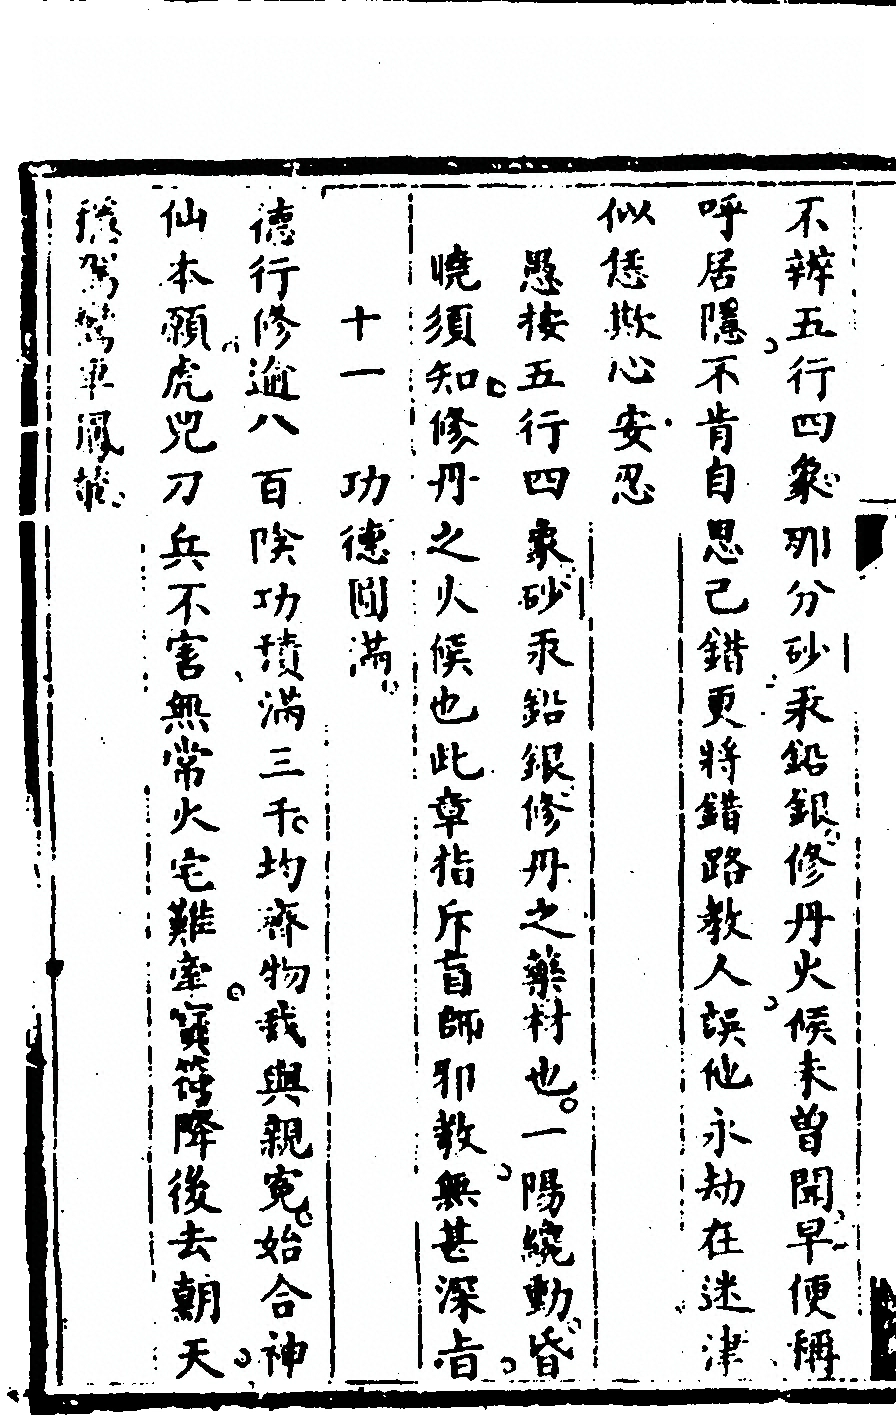 不辨五行四象那分砂汞鉛銀修丹火候未曾聞早便稱
呼居隱不肯自思己錯更將錯路教人誤他永劫在迷津
似恁欺心安忍
愚按五行四象砂汞鉛銀修丹之藥材也一陽纔動昏
曉須知修丹之火候也此章指斥盲師邪教無甚深旨
十一 功德圓滿
德行修逾八百陰功積滿三千均齊物我與親寃始合神
仙本願虎兕刀兵不害無常火宅難牽寳符降後去朝天
穏駕鸞車鳳輦